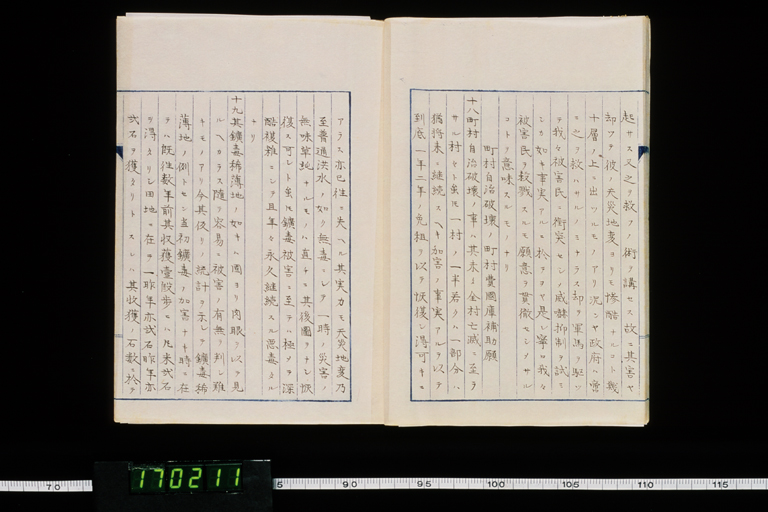 起サス又之ヲ救フノ術ヲ講セス故ニ其害ヤ
却ツテ彼ノ天災地変ヨリモ惨酷ナルコト幾
十層ノ上ニ出ツルモノアリ況ンヤ政府ハ啻
ニ之ヲ救ハサルノミナラス却ヲ軍馬ヲ駆ツ
テ我々被害民ニ衝突セシメ威嚇抑制ヲ試ミ
シカ如キ事実アルニ於テヲヤ是レ寧ロ我々
被害民ヲ殺戮スルモ願意ヲ貫徹セシメサル
コトヲ意味スルモノナリ
町村自治破壊ノ町村費国庫補助願
十八町村自治破壊ノ事ハ其未タ全村亡滅ニ至ラ
サル村々ト雖モ一村ノ一半若クハ一部分ハ
猶将来ニ継続スヘキ加害ノ事実アルヲ以テ
到底一年二年ノ免租ヲ以テ恢復シ得可キニ
アラス亦已往ニ失ヘル其実力モ天災地変乃
至普通洪水ノ如ク無毒ニシテ一時ノ災害ノ
無味草地ナルモノハ直チニ其後図ヲナシ恢
復ス可シト雖モ鑛毒被害ニ至テハ極メテ深
酷複雑ニシテ且年々永久継続スル悪毒タル
ナリ
十九其鑛毒稀薄地ノ如キハ固ヨリ肉眼ヲ以テ見
ルヘカラス随テ容易ニ被害ノ有無ヲ判シ難
キモノアリ今其仮リノ統計ヲ示シテ鑛毒稀
薄地ノ例トセン直初鑛毒ノ加害ナキ時ニ在
テハ既往数年前其収獲壹段歩ニ凡米弐石
ヲ得タリシ田地ニ在テ一昨年亦弐石昨年亦
弐石ヲ獲タリトスレハ其収獲ノ石数ニ於テ
170211
70
5
90
95
100
105
110
115